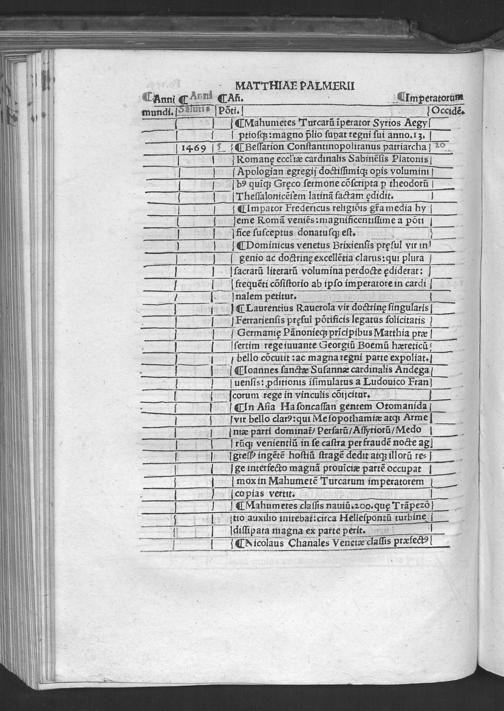 MATTHIAE PALMERII
¶Anni ¶Anni ¶Añ. ¶Imperatorum
mundi. Salutis Põti. Occidẽ.
¶Mahumetes Turcarũ ĩperator Syrios Aegy
ptiosq; magno p̃lio supat regni sui anno.13.
1469 5 ¶Bessarion Constantinopolitanus patriarcha 20
Romanę eccl̃iæ cardinalis Sabinẽsis Platonis
Apologian egregij doctissimiq; opis volumini
bꝰ quiq; Gręco sermone cõscripta p theodorũ
Thessalonicẽsem latinã factam ędidit.
¶Impator Fredericus religiõis gr̃a media hy
eme Romã veniẽs: magnificentissime a põti
fice susceptus donatusq; est.
¶Dominicus venetus Brixiensis pręsul vir in
genio ac doctrinę excellẽtia clarus: qui plura
sacrarũ literarũ volumina perdocte ędiderat:
frequẽti cõsistorio ab ipso imperatore in cardi
nalem petitur.
¶Laurentius Rauerola vir doctrinę singularis
Ferrariensis pręsul põtificis legatus solicitatis
Germanię Pãnonieq; prĩcipibus Matthia præ
sertim rege iuuante Georgiũ Boemũ hæreticũ
bello cõcutit: ac magna regni parte expoliat.
¶Ioannes sanctæ Susannæ cardinalis Andega
uensis: pditionis ĩsimulatus a Ludouico Fran
corum rege in vinculis cõijcitur.
¶In Asia Hasoncassan gentem Otomanida
vir bello clarꝰ: qui Mesopothamiæ atq; Arme
niæ parti dominat̃ Persarũ/Assyriorũ/Medo
rũq; venientiũ in se castra per fraudẽ nocte ag
gressꝰ ingẽtẽ hostiũ stragẽ dedit atq; illorũ re
ge intersecto magnã prouĩciæ partẽ occupat
mox in Mahumetẽ Turcarum imperatorem
copias vertit.
¶Mahumetes classis nauiũ.200. quę Trãpezõ
tio auxilio mittebat: circa Hellespontũ turbine
dissipata magna ex parte perit.
¶Nicolaus Chanales Venetæ classis præfectꝰ